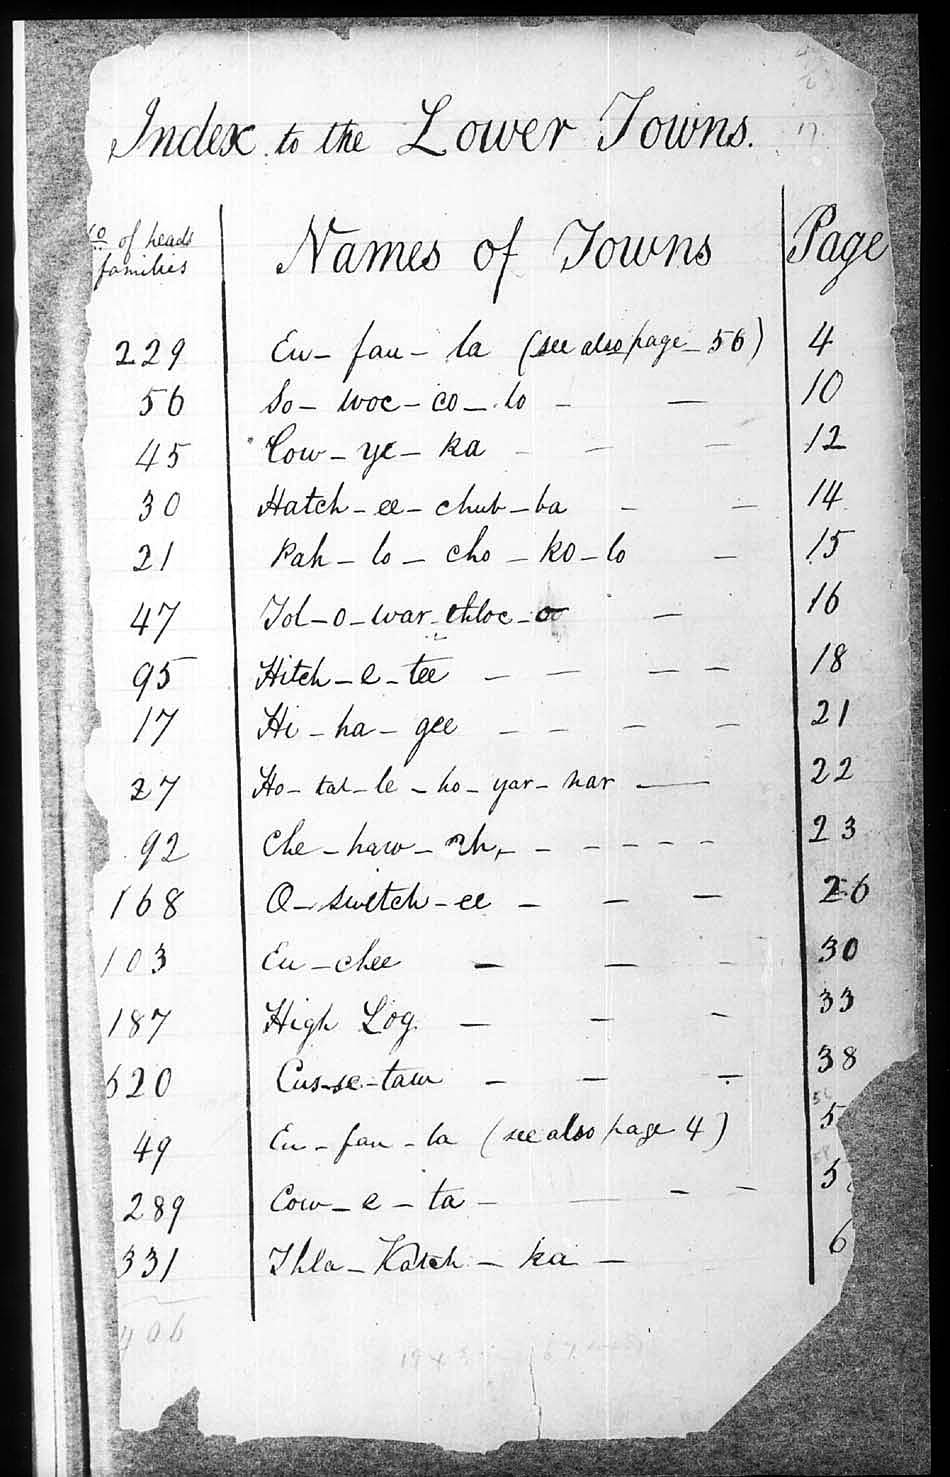 Index to the Lower Towns.
of heads
families
Names of Towns
Page
229 Eu - fau - la (see also page 56) 4
56 So - woc - co - lo - - 10
45 Cow - ye - ka - - - 12
30 Hatch - ee - chub - ba - - 14
21 Pah - lo - cho - ko - lo - 15
47 Tol - o - war - thloc - o - 16
95 Hitch - e - tee - - - - 18
17 Hi - ha - gee - - - - 21
27 Ho - tal - le - ho - yar - nar - 22
92 Che - haw - - - - - - 23
168 O - switch - ee - - - 26
103 Eu - chee - - - 30
187 High Log. - - - 33
620 Cus - se - taw - - - 38
49 Eu - fau - la (see also page 4) 5
289 Cow - e - ta - - - - 5
331 Thla - Katch - ka - 6
406